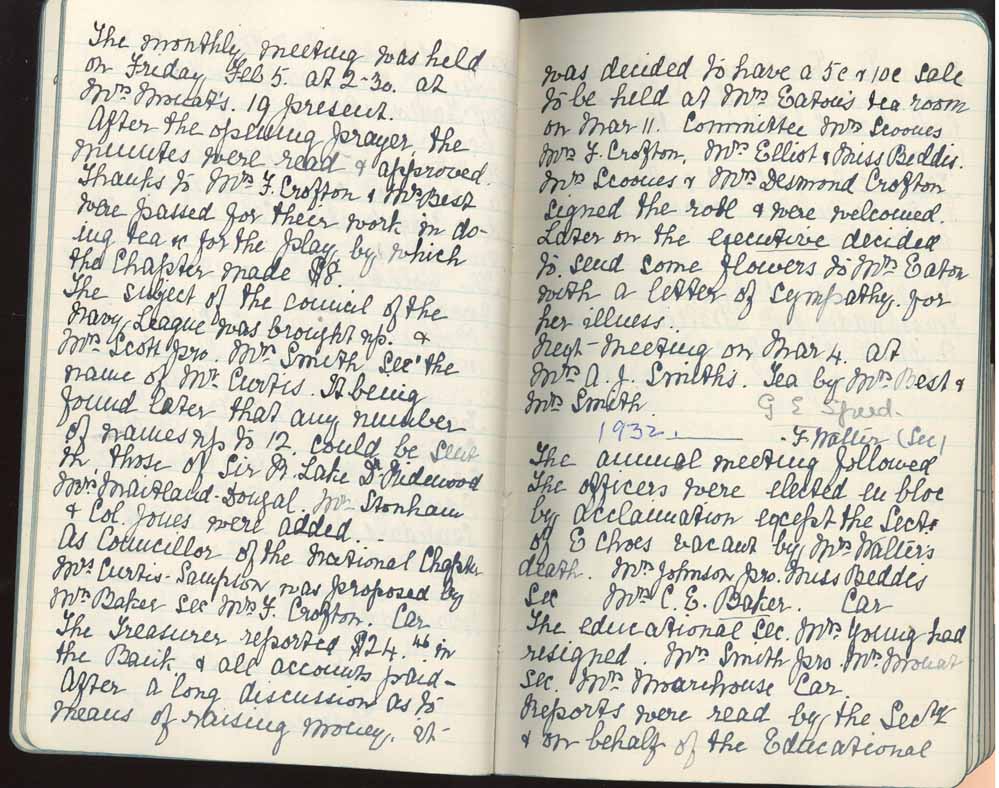 The monthly meeting was held
on Friday Feb 5. at 2-30. at
Mrs Mouat's. 19 present.
After the opening prayer, the
minutes were read & approved.
Thanks to Mrs F. Crofton & Mrs Best
were passed for their work in do-
ing tea &c for the play, by which
the Chapter made $8.
The subject of the council of the
Navy League was brought up. &
Mrs Scott pro. Mrs Smith Sec the
name of Mr Curtis. It being
found later that any number
of names up to 12. could be sent
in, those of Sir R. Lake Dr
Mrs Maitland-Dougal. Stonham
& Col. Jones were added.
As Councillor of the National Chapter
Mrs Curtis-Sampson was proposed by
Mrs Baker Sec Mrs F. Crofton. Car
The Treasurer reported $24.46 in
the Bank & all accounts paid-
After a long discussion as to
means of raising money. it
was decided to have a 5c & 10c Sale
to be held at Mrs Eaton's tea room
on Mar 11. Committee Mrs Scoones
Mrs F. Crofton, Mrs Elliot & Miss Beddis.
Mrs Scoones & Mrs Desmond Crofton
signed the roll & were welcomed.
Later on the executive decided
to send some flowers to Mrs Eaton
with a letter of sympathy for
her illness.
Next meeting on Mar 4. at
Mrs A. J. Smiths. Tea by Mrs Best &
Mrs Smith. G E Speed.
1932. F. Walter (Sec)
The annual meeting followed
The officers were elected en bloc
by acclamation except the Sect.
of Echoes vacant by Mrs Walter's
death. Mrs Johnson pro. Miss Beddis
Sec Mrs C. E. Baker. Car
The educational Sec. Mrs Young had
resigned. Mrs Smith pro. Mrs Mouat
Sec. Mrs Moorhouse Car.
Reports were read by the Secty
& on behalf of the Educational